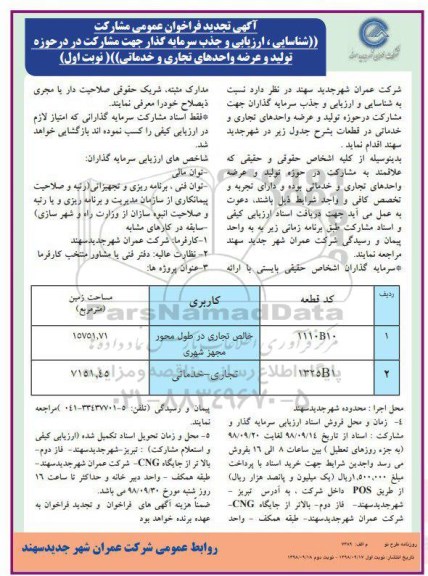 آگهی تجدید فراخوان عمومی مشارکت
((شناسایی ، ارزیابی و جذب سرمایه گذار جهت مشارکت در درحوزه
تولید و عرضه واحدهای تجاری و خدماتی))( نوبت اول)
شرکت عمران شهرجدید سهند در نظر دارد نسبت
به شناسایی و ارزیابی و جذب سرمایه گذاران جهت
مشارکت درحوزه تولید و عرضه واحدهای تجاری و
خدماتی در قطعات بشرح جدول زیر در شهرجدید
سهند اقدام نماید .
بدینوسیله از کلیه اشخاص حقوقی و حقیقی که
علاقمند به مشارکت در حوزه تولید و عرضه
واحدهای تجاری و خدماتی بوده و دارای تجربه و
تخصص کافی و واجد شرایط ذیل باشند، دعوت
به عمل می آید جهت دریافت اسناد ارزیابی کیفی
و اسناد مشارکت طبق برنامه زمانی زیر به به واحد
پیمان و رسیدگی شرکت عمران شهر جدید سهند
مراجعه نمایند.
*سرمایه گذاران اشخاص حقیقی بایستی با ارائه
مدارک مثبته، شریک حقوقی صلاحیت دار یا مجری
ذیصلاح خودرا معرفی نمایند.
*فقط اسناد مشارکت سرمایه گذارانی که امتیاز لازم
در ارزیابی کیفی را کسب نموده اند بازگشایی خواهد
شد.
شاخص های ارزیابی سرمایه گذاران:
-توان مالی
-توان فنی ، برنامه ریزی و تجهیزاتی(رتبه و صلاحیت
پیمانکاری از سازمان مدیریت و برنامه ریزی و یا رتبه
و صلاحیت انبوه سازان از وزارت راه و شهر سازی)
-سابقه در کارهای مشابه
۱-کارفرما: شرکت عمران شهرجدیدسهند
۲-نظارت عالیه: دفتر فنی یا مشاور منتخب کارفرما
۳-عنوان پروژه ها:
ردیف کد قطعه کاربری مساحت زمین (مترمربع)
۱ ۱۱۱۰B۱۰ خالص تجاری در طول محور مجهز شهری ۱۵۷۵۱,۷۱
۲ ۱۳۲۵B۱ تجاری-خدماتی ۷۱۵۱,۴۵
محل اجرا : محدوده شهرجدیدسهند
۴- زمان و محل فروش اسناد ارزیابی سرمایه گذار و
مشارکت : اسناد از تاریخ ۹۸/۰۹/۱۴ لغایت ۹۸/۰۹/۲۰
(به جزه روزهای تعطیل ) بین ساعات ۸ الی ۱۶ بفروش
می رسد واجدین شرایط جهت خرید اسناد با پرداخت
مبلغ۱,۵۰۰,۰۰۰ ریال (یک میلیون و پانصد هزار ریال)
از طریق POS داخل شرکت ، به آدرس تبریز -
شهرجدیدسهند- فاز دوم- بالاتر از جایگاه CNG-
شرکت عمران شهرجدیدسهند- طبقه همکف - واحد
پیمان و رسیدگی (تلفن: ۵-۳۳۴۳۷۷۰۱-۰۴۱ )مراجعه
نمایند.
۵- محل و زمان تحویل اسناد تکمیل شده (ارزیابی کیفی
و استعلام مشارکت) : تبریز-شهرجدیدسهند- فاز دوم-
بالا تر از جایگاه CNG- شرکت عمران شهرجدیدسهند-
طبقه همکف - واحد دبیر خانه و حداکثر تا ساعت ۱۶
روز شنبه مورخ ۹۸/۰۹/۳۰ می باشد.
ضمنا هزینه آگهی های فراخوان و تجدید فراخوان به
عهده برنده خواهد بود
روابط عمومی شرکت عمران شهر جدیدسهند
ParsNamadData
۰۲۱-۸۸۳۴۹۶۷۰-۵